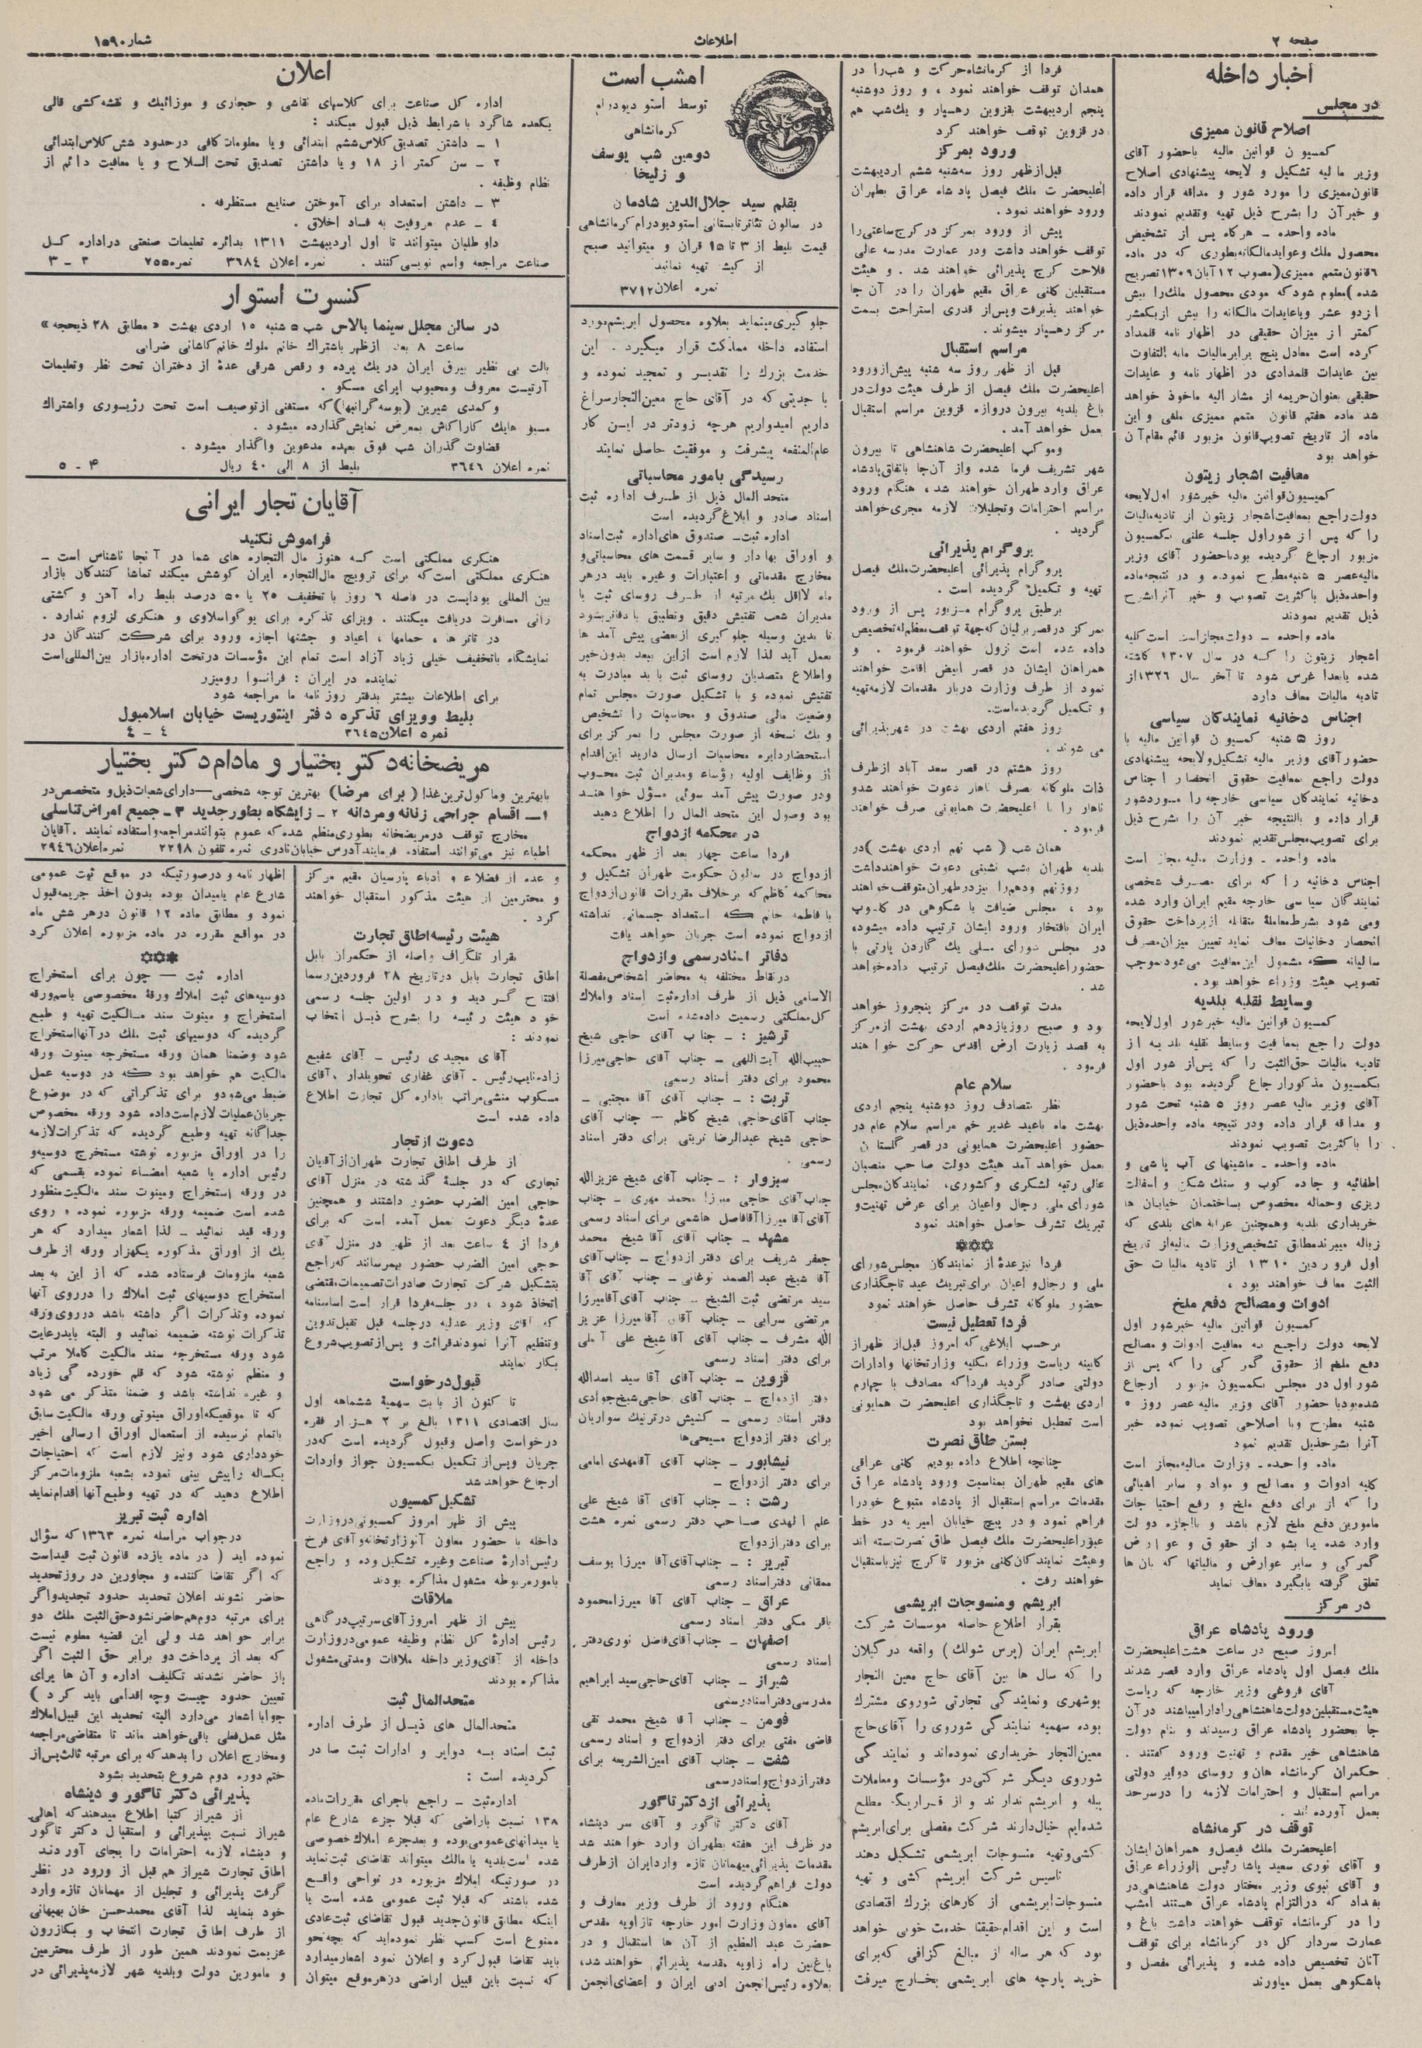 صفحه ۲
اطلاعات
شماره ۱۵۹۰
اخبار داخله
در مجلس
اصلاح قانون ممیزی
کمسیون قوانین مالیه باحضور آقای
وزیر مالیه تشکیل و لایحه پیشنهادی اصلاح
قانون ممیزی را مورد شور و مداقه قرار داده
و خبر آن را بشرح ذیل تهیه وتقدیم نمودند
ماده واحده - هرگاه پس از تشخیص
محصول ملک وعواید مالکانه بطوری که در ماده
۶ قانون متمم ممیزی (مصوب ۱۲ آبان ۱۳۰۹ تصریح
شده) معلوم شود که مودی محصول ملک را بیش
از دو عشر ویا عایدات مالکانه را بیش از یکعشر
کمتر از میزان حقیقی در اظهار نامه قلمداد
کرده است معادل پنج برابر مالیات مابه التفاوت
بین عایدات قلمدادی در اظهار نامه و عایدات
حقیقی بعنوان جریمه از مشار الیه ماخوذ خواهد
شد ماده هفتم قانون متمم ممیزی ملغی و این
ماده از تاریخ تصویب قانون مزبور قائم مقام آن
خواهد بود
معافیت اشجار زیتون
کمیسیون قوانین مالیه خبر شور اول لایحه
دولت راجع بمعافیت اشجار زیتون از تادیه مالیات
را که پس از شور اول جلسه علنی بکمسیون
مزبور ارجاع گردیده بود باحضور آقای وزیر
مالیه عصر ۵ شنبه مطرح نموده و در نتیجه ماده
واحده ذیل باکثریت تصویب و خبر آنرا بشرح
ذیل تقدیم نمودند
ماده واحده - دولت مجاز است کلیه
اشجار زیتون را که در سال ۱۳۰۷ کاشته
شده یا بعدا غرس شود تا آخر سال ۱۳۲۶ از
تادیه مالیات معاف دارد
اجناس دخانیه نمایندگان سیاسی
روز ۵ شنبه کمسیون قوانین مالیه با
حضور آقای وزیر مالیه تشکیل ولایحه پیشنهادی
دولت راجع بمعافیت حقوق انحصار اجناس
دخانیه نمایندگان سیاسی خارجه را مورد شور
قرار داده و بالنتیجه خبر آن را بشرح ذیل
برای تصویب مجلس تقدیم نمودند
ماده واحده - وزارت مالیه مجاز است
اجناس دخانیه را که برای مصرف شخصی
نمایندگان سیاسی خارجه مقیم ایران وارد شده
ومی شود بشرط معاملهٔ متقابله از پرداخت حقوق
انحصار دخانیات معاف نماید تعیین میزان مصرف
سالیانه که مشمول این معافیت می شود بموجب
تصویب هیئت وزراء خواهد بود
وسایط نقلیه بلدیه
کمسیون قوانین مالیه خبر شور اول لایحه
دولت راجع بمعافیت وسایط نقلیه بلدیه از
تادیه مالیات حق الثبت را که پس از شور اول
بکمسیون مذکور ارجاع گردیده بود باحضور
آقای وزیر مالیه عصر روز ۵ شنبه تحت شور
و مداقه قرار داده ودر نتیجه ماده واحده ذیل
را باکثریت تصویب نمودند
ماده واحده - ماشینهای آب پاشی و
اطفائیه و جاده کوب و سنگ شکن و اسفالت
ریزی وحماله مخصوص ساختمان خیابان ها
خریداری بلدیه وهمچنین عرابه های بلدی که
زباله میبرند مطابق تشخیص وزارت مالیه از تاریخ
اول فروردین ۱۳۱۰ از تادیه مالیات حق
الثبت معاف خواهند بود .
ادوات ومصالح دفع ملخ
کمسیون قوانین مالیه خبر شور اول
لایحه دولت راجع به معافیت ادوات و مصالح
دفع ملخ از حقوق گمرکی را که پس از
شور اول در مجلس بکمسیون مزبور ارجاع
شده بود با حضور آقای وزیر مالیه عصر روز ۵
شنبه مطرح وبا اصلاحی تصویب نموده خبر
آنرا بشرح ذیل تقدیم نمود
ماده واحده - وزارت مالیه مجاز است
کلیه ادوات و مصالح و مواد و سایر اشیائی
را که از برای دفع ملخ و رفع احتیاجات
مامورین دفع ملخ لازم باشد و با اجازه دولت
وارد شده یا بشود از حقوق و عوارض
گمرکی و سایر عوارض و مالیاتها که بان ها
تعلق گرفته یا بگیرد معاف نماید
در مرکز
ورود پادشاه عراق
امروز صبح در ساعت هشت اعلیحضرت
ملک فیصل اول پادشاه عراق وارد قصر شدند
آقای فروغی وزیر خارجه که ریاست
هیئت مستقبلین دولت شاهنشاهی را دارا میباشند در آن
جا بحضور پادشاه عراق رسیدند و بنام دولت
شاهنشاهی خیر مقدم و تهنیت ورود گفتند .
حکمران کرمانشاهان و روسای دوایر دولتی
مراسم استقبال و احترامات لازمه را در سرحد
بعمل آورده اند .
توقف در کرمانشاه
اعلیحضرت ملک فیصل و همراهان ایشان
و آقای نوری سعید پاشا رئیس الوزراء عراق
و آقای نبوی وزیر مختار دولت شاهنشاهی در
بغداد که در التزام پادشاه عراق هستند امشب
را در کرمانشاه توقف خواهند داشت باغ و
عمارت سردار کل در کرمانشاه برای توقف
آنان تخصیص داده شده و پذیرائی مفصل و
باشکوهی بعمل میاورند
فردا از کرمانشاه حرکت و شب را در
همدان توقف خواهند نمود ، و روز دوشنبه
پنجم اردیبهشت بقزوین رهسپار و یکشب هم
در قزوین توقف خواهند کرد
ورود بمرکز
قبل از ظهر روز سه شنبه ششم اردیبهشت
اعلیحضرت ملک فیصل پادشاه عراق بطهران
ورود خواهند نمود.
پیش از ورود بمرکز در کرج ساعتی را
توقف خواهند داشت ودر عمارت مدرسه عالی
فلاحت کرج پذیرائی خواهند شد . و هیئت
مستقبلین کلنی عراق مقیم طهران را در آن جا
خواهند پذیرفت وپس از قدری استراحت بسمت
مرکز رهسپار میشوند.
مراسم استقبال
قبل از ظهر روز سه شنبه پیش از ورود
اعلیحضرت ملک فیصل از طرف هیئت دولت در
باغ بلدیه بیرون دروازه قزوین مراسم استقبال
بعمل خواهد آمد.
وموکب اعلیحضرت شاهنشاهی تا بیرون
شهر تشریف فرما شده واز آن جا باتفاق پادشاه
عراق وارد طهران خواهند شد، هنگام ورود
مراسم احترامات وتجلیلات لازمه مجری خواهد
گردید .
پروگرام پذیرائی
پروگرام پذیرائی اعلیحضرت ملک فیصل
تهیه و تکمیل گردیده است .
برطبق پروگرام مزبور پس از ورود
بمرکز در قصر برلیان که جهة توقف معظم له تخصیص
داده شده است نزول خواهند فرمود . و
همراهان ایشان در قصر ابیض اقامت خواهند
نمود از طرف وزارت دربار مقدمات لازمه تهیه
و تکمیل گردیده است.
روز هفتم اردی بهشت در شهر پذیرائی
می شوند .
روز هشتم در قصر سعد آباد از طرف
ذات ملوکانه بصرف ناهار دعوت خواهند شد و
ناهار را با اعلیحضرت همایونی صرف خواهند
فرمود .
همان شب ( شب نهم اردی بهشت ) در
بلدیه طهران بشب نشینی دعوت خواهند داشت
روز نهم ودهم را نیز در طهران متوقف خواهند
بود ، مجلس ضیافت با شکوهی در کلوپ
ایران بافتخار ورود ایشان ترتیب داده میشود،
در مجلس شورای ملی یک گاردن پارتی با
حضور اعلیحضرت ملک فیصل ترتیب داده خواهد
شد .
مدت توقف در مرکز پنجروز خواهد
بود و صبح روز یازدهم اردی بهشت از مرکز
به قصد زیارت ارض اقدس حرکت خواهند
فرمود .
سلام عام
نظر بتصادف روز دوشنبه پنجم اردی
بهشت ماه باعید غدیر خم مراسم سلام عام در
حضور اعلیحضرت همایونی در قصر گلستان
بعمل خواهد آمد هیئت دولت صاحب منصبان
عالی رتبه لشگری و کشوری، نمایندگان مجلس
شورای ملی رجال واعیان برای عرض تهنیت و
تبریک تشرف حاصل خواهند نمود
***
فردا نیز عدهٔ از نمایندگان مجلس شورای
ملی و رجال و اعیان برای تبریک عید تاجگذاری
حضور ملوکانه تشرف حاصل خواهند نمود
فردا تعطیل نیست
برحسب ابلاغی که امروز قبل از ظهر از
کابینه ریاست وزراء بکلیه وزارتخانها وادارات
دولتی صادر گردید فردا که مصادف با چهارم
اردی بهشت و تاجگذاری اعلیحضرت همایونی
است تعطیل نخواهد بود
بستن طاق نصرت
چنانچه اطلاع داده بودیم کلنی عراقی
های مقیم طهران بمناسبت ورود پادشاه عراق
مقدمات مراسم استقبال از پادشاه متبوع خود را
فراهم نمود و در پیچ خیابان امیریه در خط
عبور اعلیحضرت ملک فیصل طاق نصرت بسته اند
وهیئت نمایندگان کلنی مزبور تا کرج نیز باستقبال
خواهند رفت .
ابریشم ومنسوجات ابریشمی
بقرار اطلاع حاصله موسسات شرکت
ابریشم ایران (پرس شولک) واقعه در گیلان
را که سال ها بین آقای حاج معین التجار
بوشهری ونمایندگی تجارتی شوروی مشترک
بوده سهمیه نمایندگی شوروی را آقای حاج
معین التجار خریداری نموده اند و نمایندگی
شوروی دیگر شرکتی در مؤسسات ومعاملات
پیله و ابریشم ندارند و از قراریکه مطلع
شده ایم خیال دارند شرکت مفصلی برای ابریشم
کشی وتهیه منسوجات ابریشمی تشکیل دهند
تاسیس شرکت ابریشم کشی و تهیه
منسوجات ابریشمی از کارهای بزرگ اقتصادی
است و این اقدام حقیقتا خدمت خوبی خواهد
بود که هر ساله از مبالغ گزافی که برای
خرید پارچه های ابریشمی بخارج میرفت
امشب است
توسط استودیودرام
کرمانشاهی
دومین شب یوسف
و زلیخا
بقلم سید جلال الدین شادمان
در سالون تئاتر تابستانی استودیو درام کرمانشاهی
قیمت بلیط از ۳ تا ۱۵ قران و میتوانید صبح
از گیشه تهیه نمائید
نمره اعلان ۳۷۱۲
جلو گیری مینماید بعلاوه محصول ابریشم مورد
استفاده داخله مملکت قرار میگیرد . این
خدمت بزرگ را تقدیر و تمجید نموده و
با جدیتی که در آقای حاج معین التجار سراغ
داریم امیدواریم هرچه زودتر در این کار
عام المنفعه پیشرفت و موفقیت حاصل نمایند
رسیدگی بامور محاسباتی
متحد المال ذیل از طرف اداره ثبت
اسناد صادر و ابلاغ گردیده است
اداره ثبت- صندوق های اداره ثبت اسناد
و اوراق بهادار و سایر قسمت های محاسباتی و
مخارج مقدماتی و اعتبارات و غیره باید در هر
ماه لااقل یک مرتبه از طرف روسای ثبت یا
مدیران شعب تفتیش دقیق وتطبیق با دفاتر بشود
تا بدین وسیله جلو گیری از بعضی پیش آمد ها
بعمل آید لذا لازم است از این ببعد بدون خبر
و اطلاع متصدیان روسای ثبت یا ید مبادرت به
تفتیش نموده و با تشکیل صورت مجلس تمام
وضعیت مالی صندوق و محاسبات را تشخیص
و یک نسخه از صورت مجلس را بمرکز برای
استحضار دایره محاسبات ارسال دارید این اقدام
از وظایف اولیه رؤساء ومدیران ثبت محسوب
ودر صورت پیش آمد سوئی مسؤل خواهند
بود وصول این متحد المال را اطلاع دهید
در محکمه ازدواج
فردا ساعت چهار بعد از ظهر محکمه
ازدواج در سالون حکومت طهران تشکیل و
محاکمه کاظم که برخلاف مقررات قانون ازدواج
با فاطمه خانم که استعداد جسمانی نداشته
ازدواج نموده است جریان خواهد یافت
دفاتر اسناد رسمی وازدواج
در نقاط مختلفه به محاضر اشخاص مفصلة
الاسامی ذیل از طرف اداره ثبت اسناد واملاک
کل مملکتی رسمیت داده شده است
ترشیز : - جناب آقای حاجی شیخ
حبیب الله آیت اللهی - جناب آقای حاجی میرزا
محمود برای دفتر اسناد رسمی
تربت : - جناب آقای آقا مجتبی -
جناب آقای حاجی شیخ کاظم - جناب آقای
حاجی شیخ عبدالرضا تربتی برای دفتر اسناد
رسمی .
سبزوار : - جناب آقای شیخ عزیزالله
جناب آقای حاجی میرزا محمد مهری - جناب
آقای آقا میرزا آقا فاضل هاشمی برای اسناد رسمی
مشهد - جناب آقای آقا شیخ محمد
جعفر شریف برای دفتر ازدواج - جناب آقای
آقا شیخ عبد الصمد نوغانی - جناب آقای آقا
سید مرتضی ثبت الشیخ - جناب آقای آقا میرزا
مرتضی سرابی - جناب آقای آقا میرزا عزیز
الله مشرف - جناب آقای آقا شیخ علی آملی
برای دفتر اسناد رسمی
قزوین - جناب آقای آقا سید اسدالله
دفتر ازدواج - جناب آقای حاجی شیخ جوادی
دفتر اسناد رسمی - کشیش درتریک سواریان
برای دفتر ازدواج مسیحی ها
نیشابور - جناب آقای آقا مهدی امامی
برای دفتر ازدواج -
رشت : - جناب آقای آقا شیخ علی
علم الهدی صاحب دفتر رسمی نمره هشت
برای دفتر ازدواج
تبریز : - جناب آقای آقا میرزا یوسف
ممقانی دفتر اسناد رسمی
عراق - جناب آقای آقا میرزا محمود
باقر مکی دفتر اسناد رسمی
اصفهان - جناب آقای فاضل نوری دفتر
اسناد رسمی
شیراز - جناب آقای حاجی سید ابراهیم
مدرسی دفتر اسناد رسمی
فومن - جناب آقا شیخ محمد تقی
قاضی مفتی برای دفتر ازدواج و اسناد رسمی
شفت - جناب آقای امین الشریعه برای
دفتر ازدواج واسناد رسمی
پذیرائی از دکتر تاگور
آقای دکتر تاگور و آقای سر دینشاه
در ظرف این هفته بطهران وارد خواهند شد
مقدمات پذیرائی میهمانان تازه وارد ایران از طرف
دولت فراهم گردیده است
هنگام ورود از طرف وزیر معارف و
آقای معاون وزارت امور خارجه تا زاویه مقدس
حضرت عبد العظیم از آن ها استقبال و در
باغ بین راه زاویه مقدسه پذیرائی خواهند شد،
بعلاوه رئیس انجمن ادبی ایران و اعضای انجمن
اعلان
اداره کل صناعت برای کلاسهای نقاشی و حجاری و موزائیک و نقشه کشی قالی
یکعده شاگرد با شرایط ذیل قبول میکند :
۱ - داشتن تصدیق کلاس ششم ابتدائی ویا معلومات کافی در حدود شش کلاس ابتدائی
۲ - سن کمتر از ۱۸ و یا داشتن تصدیق تحت السلاح و یا معافیت دائم از
نظام وظیفه .
۳ - داشتن استعداد برای آموختن صنایع مستظرفه .
۴ - عدم معروفیت به فساد اخلاق .
داوطلبان میتوانند تا اول اردیبهشت ۱۳۱۱ بدائره تعلیمات صنعتی در اداره کل
صناعت مراجعه واسم نویسی کنند . نمره اعلان ۳۶۸۴ نمره ۷۵۵ ۳ - ۳
کنسرت استوار
در سالن مجلل سینما پالاس شب ۵ شنبه ۱۵ اردی بهشت « مطابق ۲۸ ذیحجه »
ساعت ۸ بعد از ظهر باشتراک خانم ملوک خانم کاشانی ضرابی
بالت بی نظیر بیرق ایران در یک پرده و رقص شرقی عدهٔ از دختران تحت نظر وتعلیمات
آرتیست معروف ومحبوب اپرای مسکو .
و کمدی شیرین (بوسه گرانبها) که مستغنی از توصیف است تحت رژیسوری واشتراک
مسیو هایک کاراکاش بمعرض نمایش گذارده میشود .
قضاوت گذران شب فوق بعهده مدعوین واگذار میشود .
نمره اعلان ۳۶۴۶ بلیط از ۸ الی ۴۰ ریال ۴ - ۵
آقایان تجار ایرانی
فراموش نکنید
هنگری مملکتی است که هنوز مال التجاره های شما در آنجا ناشناس است -
هنگری مملکتی است که برای ترویج مال التجاره ایران کوشش میکند تماشا کنندگان بازار
بین المللی بوداپست در فاصله ۶ روز با تخفیف ۲۵ یا ۵۰ درصد بلیط راه آهن و کشتی
رانی مسافرت دریافت میکنند . ویزای تذکره برای یوگواسلاوی و هنگری لزوم ندارد .
در تاتر ها ، حمامها ، اعیاد و جشنها اجازه ورود برای شرکت کنندگان در
نمایشگاه باتخفیف خیلی زیاد آزاد است تمام این مؤسسات در تحت اداره بازار بین المللی است
نماینده در ایران : فرانسوا رومیزر
برای اطلاعات بیشتر بدفتر روزنامه ما مراجعه شود
بلیط وویزای تذکره دفتر اینتوریست خیابان اسلامبول
نمره اعلان ۳۶۴۵ ۴ - ۴
مریضخانه دکتر بختیار و مادام دکتر بختیار
با بهترین وماکول ترین غذا (برای مرضا) بهترین توجه شخصی - دارای شعبات ذیل و متخصص در
۱ - اقسام جراحی زنانه ومردانه ۲ - زایشگاه بطور جدید ۳ - جمیع امراض تناسلی
مخارج توقف در مریضخانه بطوری منظم شده که عموم بتوانند مراجعه واستفاده نمایند . آقایان
اطباء نیز می توانند استفاده فرمایند آدرس خیابان نادری نمره تلفون ۲۲۹۸ نمره اعلان ۲۹۴۶
و عده از فضلاء و ادباء پارسیان مقیم مرکز
و محترمین از هیئت مذکور استقبال خواهند
کرد .
هیئت رئیسه اطاق تجارت
بقرار تلگراف واصله از حکمران بابل
اطاق تجارت بابل در تاریخ ۲۸ فروردین رسما
افتتاح گردید و در اولین جلسه رسمی
خود هیئت رئیسه را بشرح ذیل انتخاب
نمودند :
آقای مجیدی رئیس - آقای شفیع
زاده نایب رئیس - آقای غفاری تحویلدار ، آقای
مسکوب منشی مراتب باداره کل تجارت اطلاع
داده شده است
دعوت از تجار
از طرف اطاق تجارت طهران از آقایان
تجاری که در جلسهٔ گذشته در منزل آقای
حاجی امین الضرب حضور داشتند و همچنین
عدهٔ دیگر دعوت بعمل آمده است که برای
فردا از ۴ ساعت بعد از ظهر در منزل آقای
حاجی امین الضرب حضور بهمرسانند که راجع
بتشکیل شرکت تجارت صادرات تصمیمات مقتضی
اتخاذ شود ، در جلسه فردا قرار است اساسنامه
که آقای وزیر عدلیه در جلسه قبل تقبل تدوین
وتنظیم آنرا نمودند قرائت و پس از تصویب شروع
بکار نمایند
قبول درخواست
تا کنون از بابت سهمیهٔ ششماهه اول
سال اقتصادی ۱۳۱۱ بالغ بر ۲ هزار فقره
درخواست واصل وقبول گردیده است که در
جریان وپس از تکمیل بکمسیون جواز واردات
ارجاع خواهد شد
تشکیل کمسیون
پیش از ظهر امروز کمسیونی در وزارت
داخله با حضور معاون آنوزارتخانه و آقای فرخ
رئیس ادارهٔ صناعت وغیره تشکیل بوده و راجع
بامور مربوطه مشغول مذاکره بودند
ملاقات
پیش از ظهر امروز آقای سرتیپ درگاهی
رئیس ادارهٔ کل نظام وظیفه عمومی در وزارت
داخله از آقای وزیر داخله ملاقات ومدتی مشغول
مذاکره بودند
متحدالمال ثبت
متحدالمال های ذیل از طرف اداره
ثبت اسناد به دوایر و ادارات ثبت صادر
گردیده است :
اداره ثبت - راجع باجرای مقررات ماده
۱۳۸ نسبت باراضی که قبلا جزء شارع عام
یا میدانهای عمومی بوده و بعد جزء املاک خصوصی
شده است بلدیه یا مالک میتواند تقاضای ثبت نماید
در صورتیکه املاک مزبوره در نواحی واقع
شده باشند که قبلا ثبت عمومی شده است یا
اینکه مطابق قانون جدید قبول تقاضای ثبت عادی
ممنوع است کسب نظر نموده اید که بچه نحو
باید تقاضا قبول کرد و اعلان نمود اشعار میدارد
که نسبت باین قبیل اراضی در هر موقع میتوان
اظهار نامه ودر صورتیکه در موقع ثبت عمومی
شارع عام یا میدان بوده بدون اخذ جریمه قبول
نمود و مطابق ماده ۱۲ قانون در هر شش ماه
در مواقع مقرره در ماده مزبوره اعلان کرد
***
اداره ثبت - چون برای استخراج
دوسیه های ثبت املاک ورقهٔ مخصوصی باسم ورقه
استخراج و مینوت سند مالکیت تهیه و طبع
گردیده که دوسیهای ثبت ملک در آنها استخراج
شود وضمنا همان ورقه مستخرجه مینوت ورقه
مالکیت هم خواهد بود که در دوسیه عمل
ضبط می شود و برای تذکراتی که در موضوع
جریان عملیات لازم است داده شود ورقه مخصوص
جداگانه تهیه وطبع گردیده که تذکرات لازمه
را در اوراق مزبوره نوشته مستخرج دوسیه و
رئیس اداره یا شعبه امضاء نموده بقسمی که
در ورقه استخراج ومینوت سند مالکیت منظور
شده است ضمیمه ورقه مزبوره نموده و روی
ورقه قید نمائید - لذا اشعار میدارد که هر
یک از اوراق مذکوره یکهزار ورقه از طرف
شعبه ملزومات فرستاده شده که از این به بعد
استخراج دوسیهای ثبت املاک را در روی آنها
نموده وتذکرات اگر داشته باشد در روی ورقه
تذکرات نوشته ضمیمه نمائید و البته باید رعایت
شود ورقه مستخرجه سند مالکیت کاملا مرتب
و منظم نوشته شود که قلم خورده گی زیاد
و غیره نداشته باشد و ضمنا متذکر می شود
که تا موقعیکه اوراق مینوتی ورقه مالکیت سابق
باتمام نرسیده از استعمال اوراق ارسالی اخیر
خودداری شود ونیز لازم است که احتیاجات
یکساله را پیش بینی نموده بشعبه ملزومات مرکز
اطلاع دهید که در تهیه وطبع آنها اقدام نماید
اداره ثبت تبریز
در جواب مراسله نمره ۱۳۶۳ که سؤال
نموده اید ( در ماده یازده قانون ثبت قید است
که اگر تقاضا کننده و مجاورین در روز تحدید
حاضر نشوند اعلان تحدید حدود تجدید و اگر
برای مرتبه دوم هم حاضر نشود حق الثبت ملک دو
برابر خواهد شد ولی این قضیه معلوم نیست
که بعد از پرداخت دو برابر حق الثبت اگر
باز حاضر نشدند تکلیف اداره و آن ها برای
تعیین حدود چیست وچه اقدامی باید کرد )
جوابا اشعار می دارد البته تحدید این قبیل املاک
مثل عمل فعلی باقی خواهد ماند تا متقاضی مراجعه
ومخارج اعلان را بدهد که برای مرتبه ثالث پس از
ختم دوره دوم شروع بتحدید بشود
پذیرائی دکتر تاگور و دینشاه
از شیراز کتبا اطلاع میدهند که اهالی
شیراز نسبت بپذیرائی و استقبال دکتر تاگور
و دینشاه لازمه احترامات را بجای آوردند
اطاق تجارت شیراز هم قبل از ورود در نظر
گرفت پذیرائی و تجلیل از مهمانان تازه وارد
خود بنماید لذا آقای محمد حسن خان بهبهانی
از طرف اطاق تجارت انتخاب و بکازرون
عزیمت نمودند همین طور از طرف محترمین
و مامورین دولت وبلدیه شهر لازمه پذیرائی در